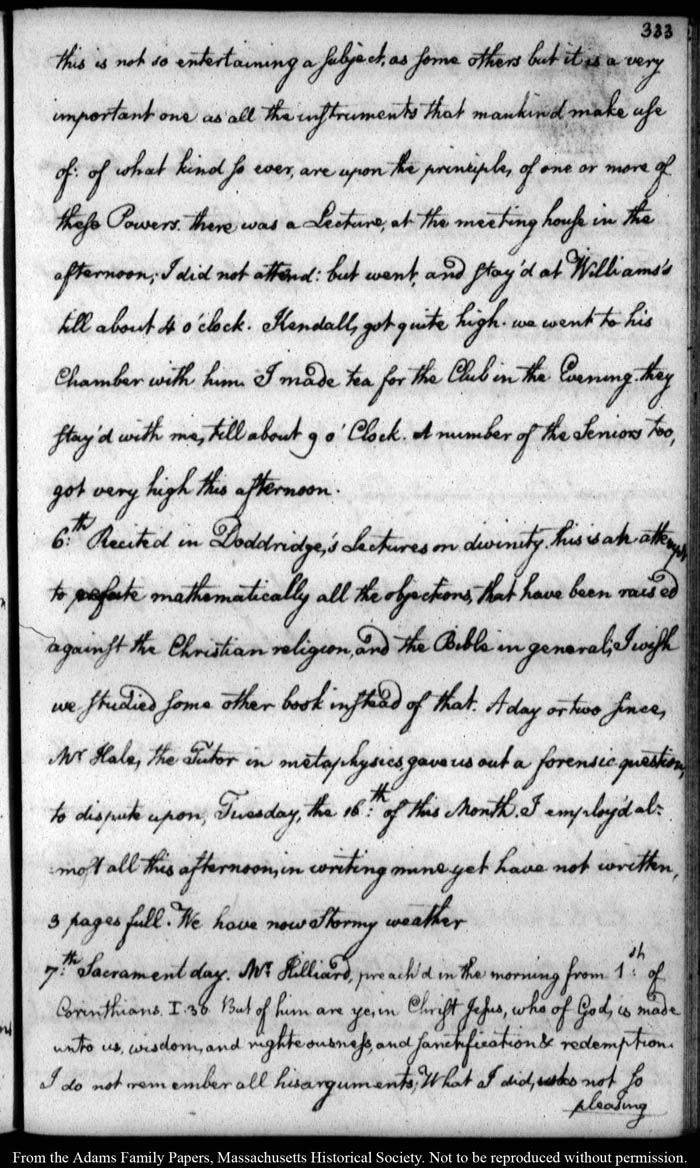 333
this is not so entertaining a subject, as some others but it is a very
important one as all the instruments that mankind make use
of: of what kind so ever, are upon the principle, of one or more of
these Powers. there was a Lecture, at the meeting house in the
afternoon; I did not attend: but went, and stay'd at Williams's
till about 4 o'clock. Kendall, got quite high. we went to his
Chamber with him. I made tea for the Club in the Evening. they
stay'd with me, till about 9 o'Clock. A number of the Seniors too,
got very high this afternoon.
6:th Recited in Doddridge,'s Lectures on divinity. this is an attempt
to refute mathematically all the objections, that have been raised
against the Christian religion, and the Bible in general; I wish
we studied some other book instead of that. A day or two since,
Mr Hale, the Tutor in metaphysics, gave us out a forensic question,
to dispute upon, Tuesday, the 16:th of this Month. I employ'd al-
most all this afternoon, in writing mine yet have not written,
3 pages full. We have now Stormy weather
7:th Sacrament day. Mr Hilliard, preach'd in the morning from 1:st of
Corinthians. I. 30. But of him are ye, in Christ Jesus, who of God, is made
unto us, wisdom, and righteousness, and sanctification & redemption.
I do not remember all his arguments; What I did, was not so
pleasing
From the Adams Family Papers, Massachusetts Historical Society. Not to be reproduced without permission.